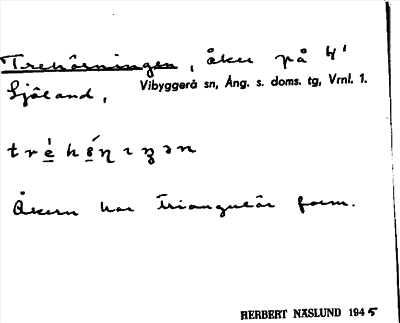 Trehörningen, åker på 4'
Sjöland, Vibyggerå sn, Ång. s. doms. tg, Vrnl. 1.
Åkern har triangulär form.
HERBERT NÄSLUND 1945